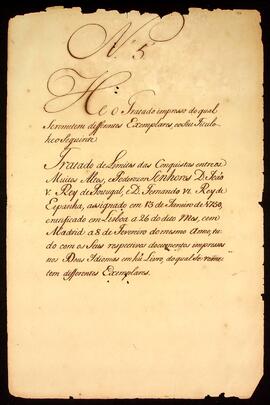 N. 5
He o Tratado impresso do qual
Se remetem differentes Exemplares, e o Seu Titulo
he o Seguinte
Tratado de Limites das Conquistas entre os
Muitos Altos, e Poderozos Senhores D. João
V. Rey de Portugal, e D. Fernando VI. Rey de
Espanha, assignado em 13 de Janeiro de 1750,
e retificado em Lisboa a 26 do dito Mes, e em
Madrid a 8 de Fevereiro do mesmo Anno, tu
do com os Seus respectivos documentos impressos
nos Dous Idiomas em hũ Livro, do qual Se reme
tem differentes Exemplares.